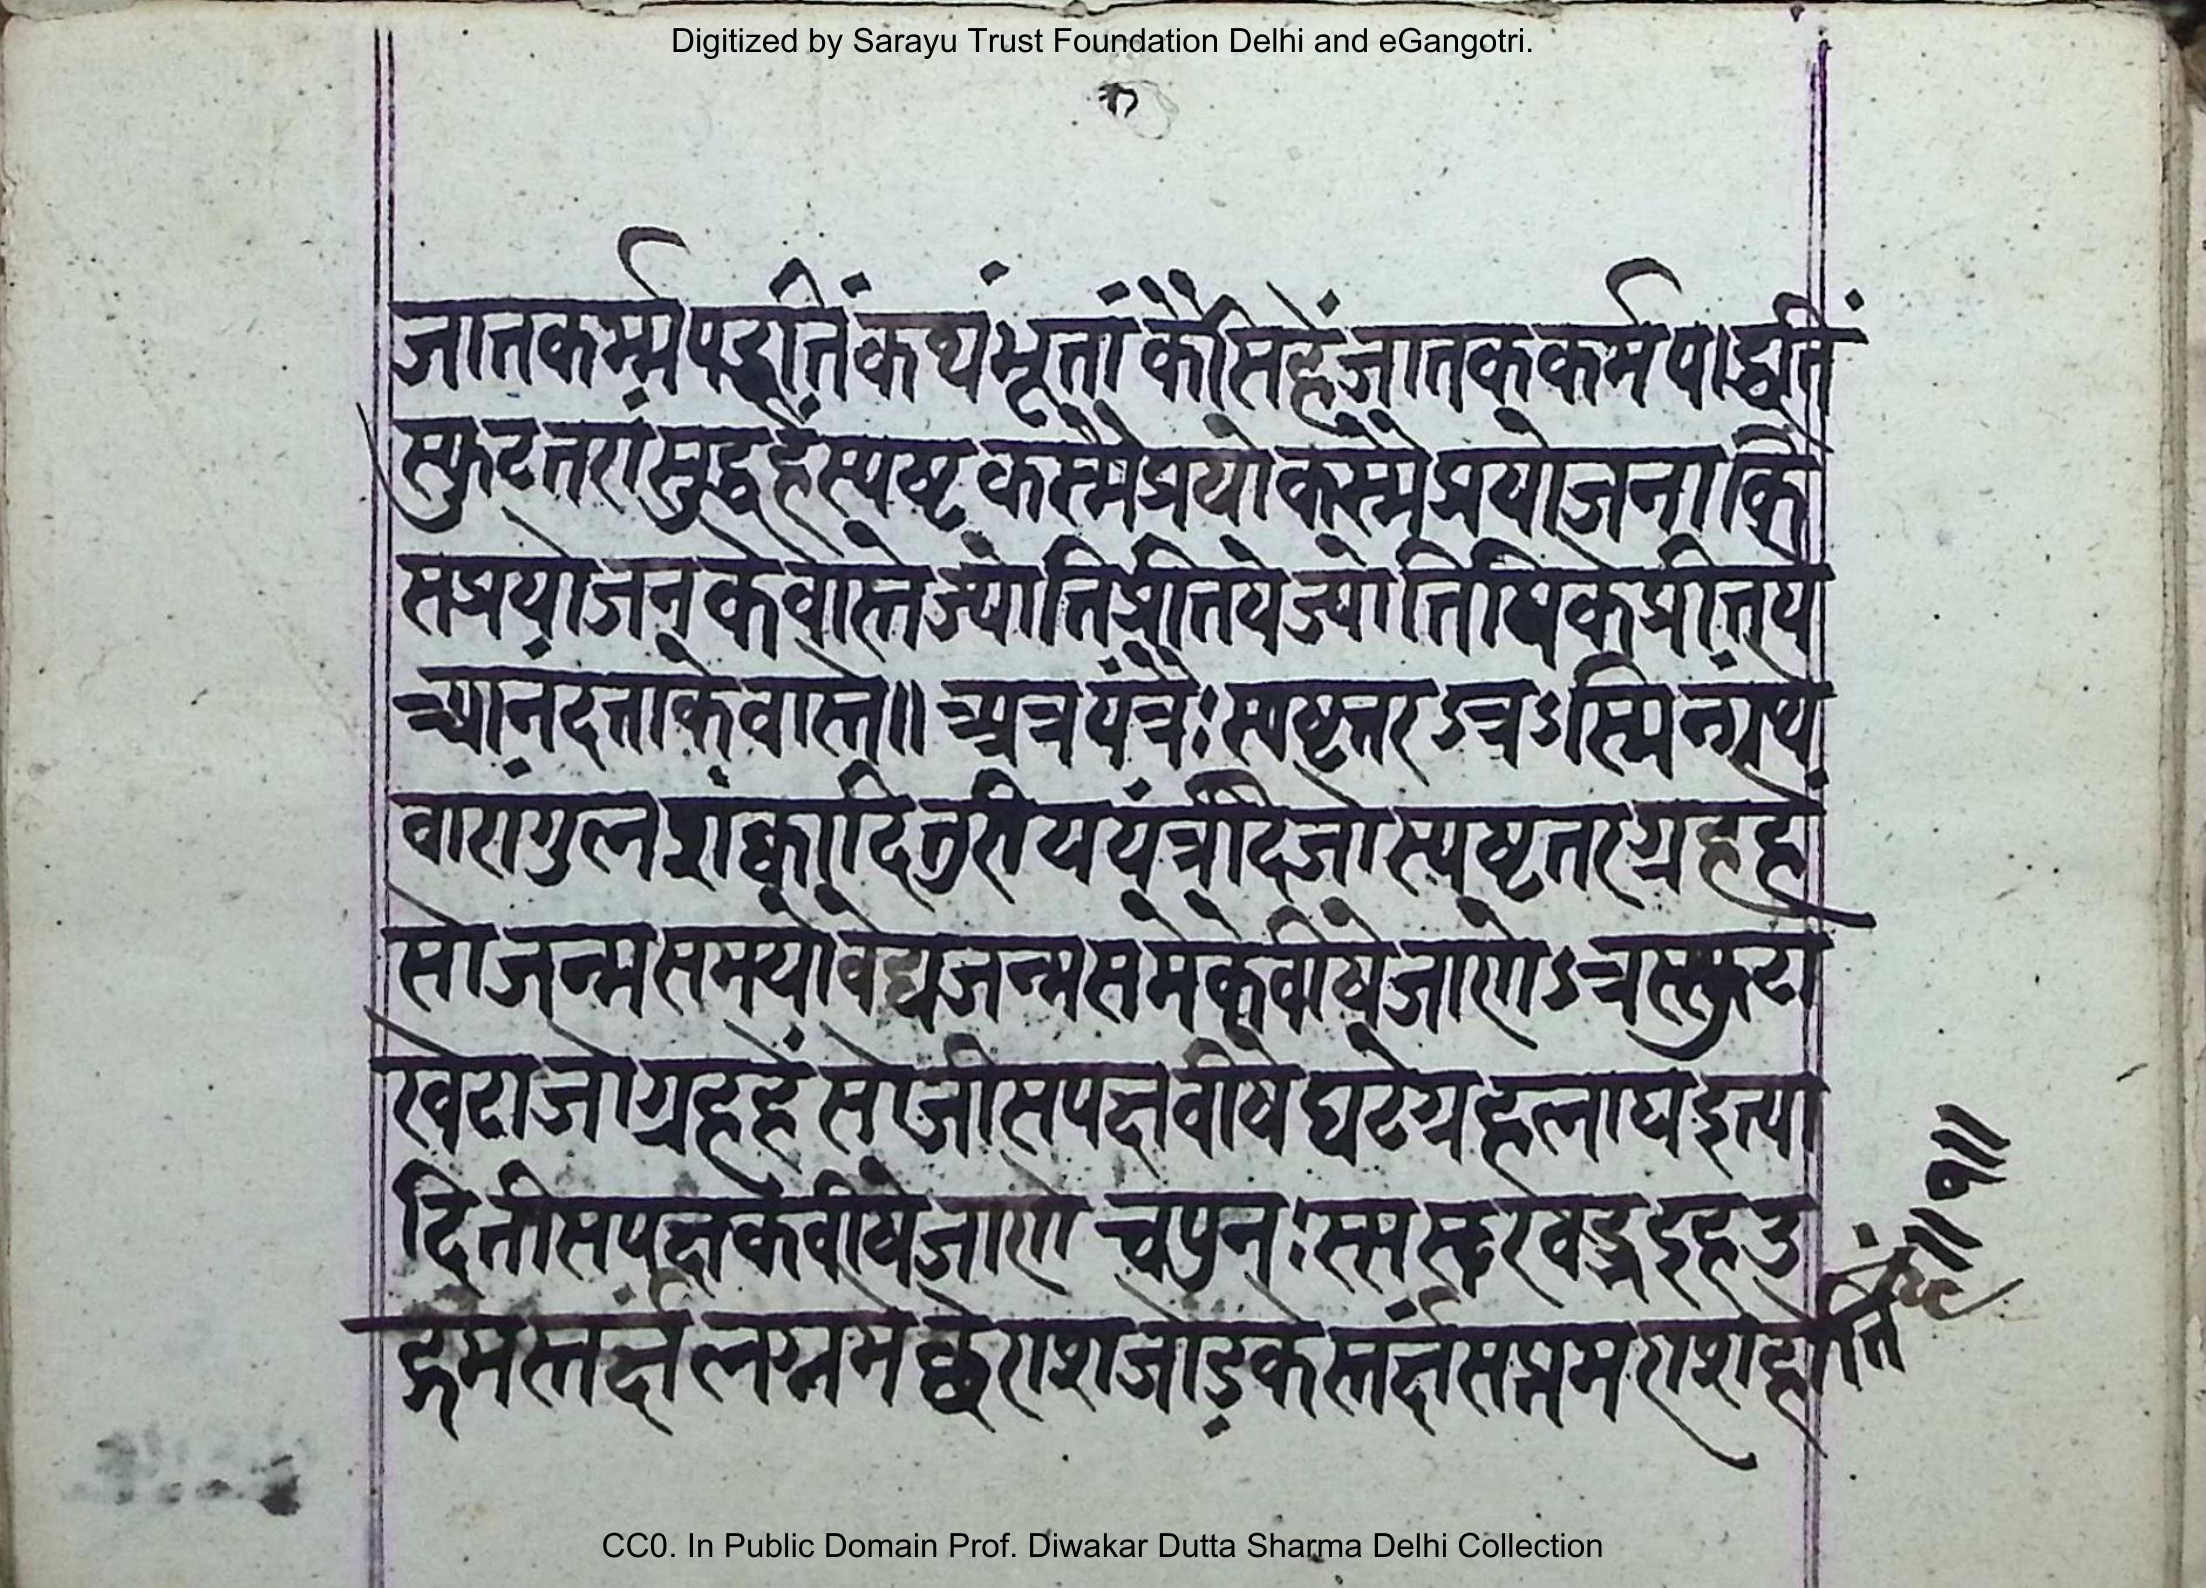 Digitized by Sarayu Trust Foundation Delhi and eGangotri.
जातकर्म्मपद्धतिं कथंभूतां कैसि हें जातककर्म पाद्धतिं
स्फुटतरां सुद्ध हें स्पष्ट कस्मै प्रयो कस्मै प्रयोजना कि
स प्रयोजन के वास्ते ज्योति प्रीतये ज्योतिषि के प्रीतये
आनंदता के वास्ते॥ अत्र यंत्रैः स्पष्टतर ऽत्र ऽस्मिन्ग्रंथे
वारांगुल शंक्वादि तुरीय यंत्रादि जो स्पष्टतर ग्रह हें
सो जन्मसमयो वेद्य जन्म समे के वीषे जाणो ऽत्र स्फुटा
खेटा जो ग्रह हें सो जीस पक्ष वीषे घटे ग्रहलाघ इत्या
दि तीस पक्ष के वीषे जाणो च पुनः इह उ
द्गमस्तर्क्ष लग्न मे छे राश जोड़के स्तर्क्ष सप्तम राश होति
॥१॥
CC0. In Public Domain Prof. Diwakar Dutta Sharma Delhi Collection